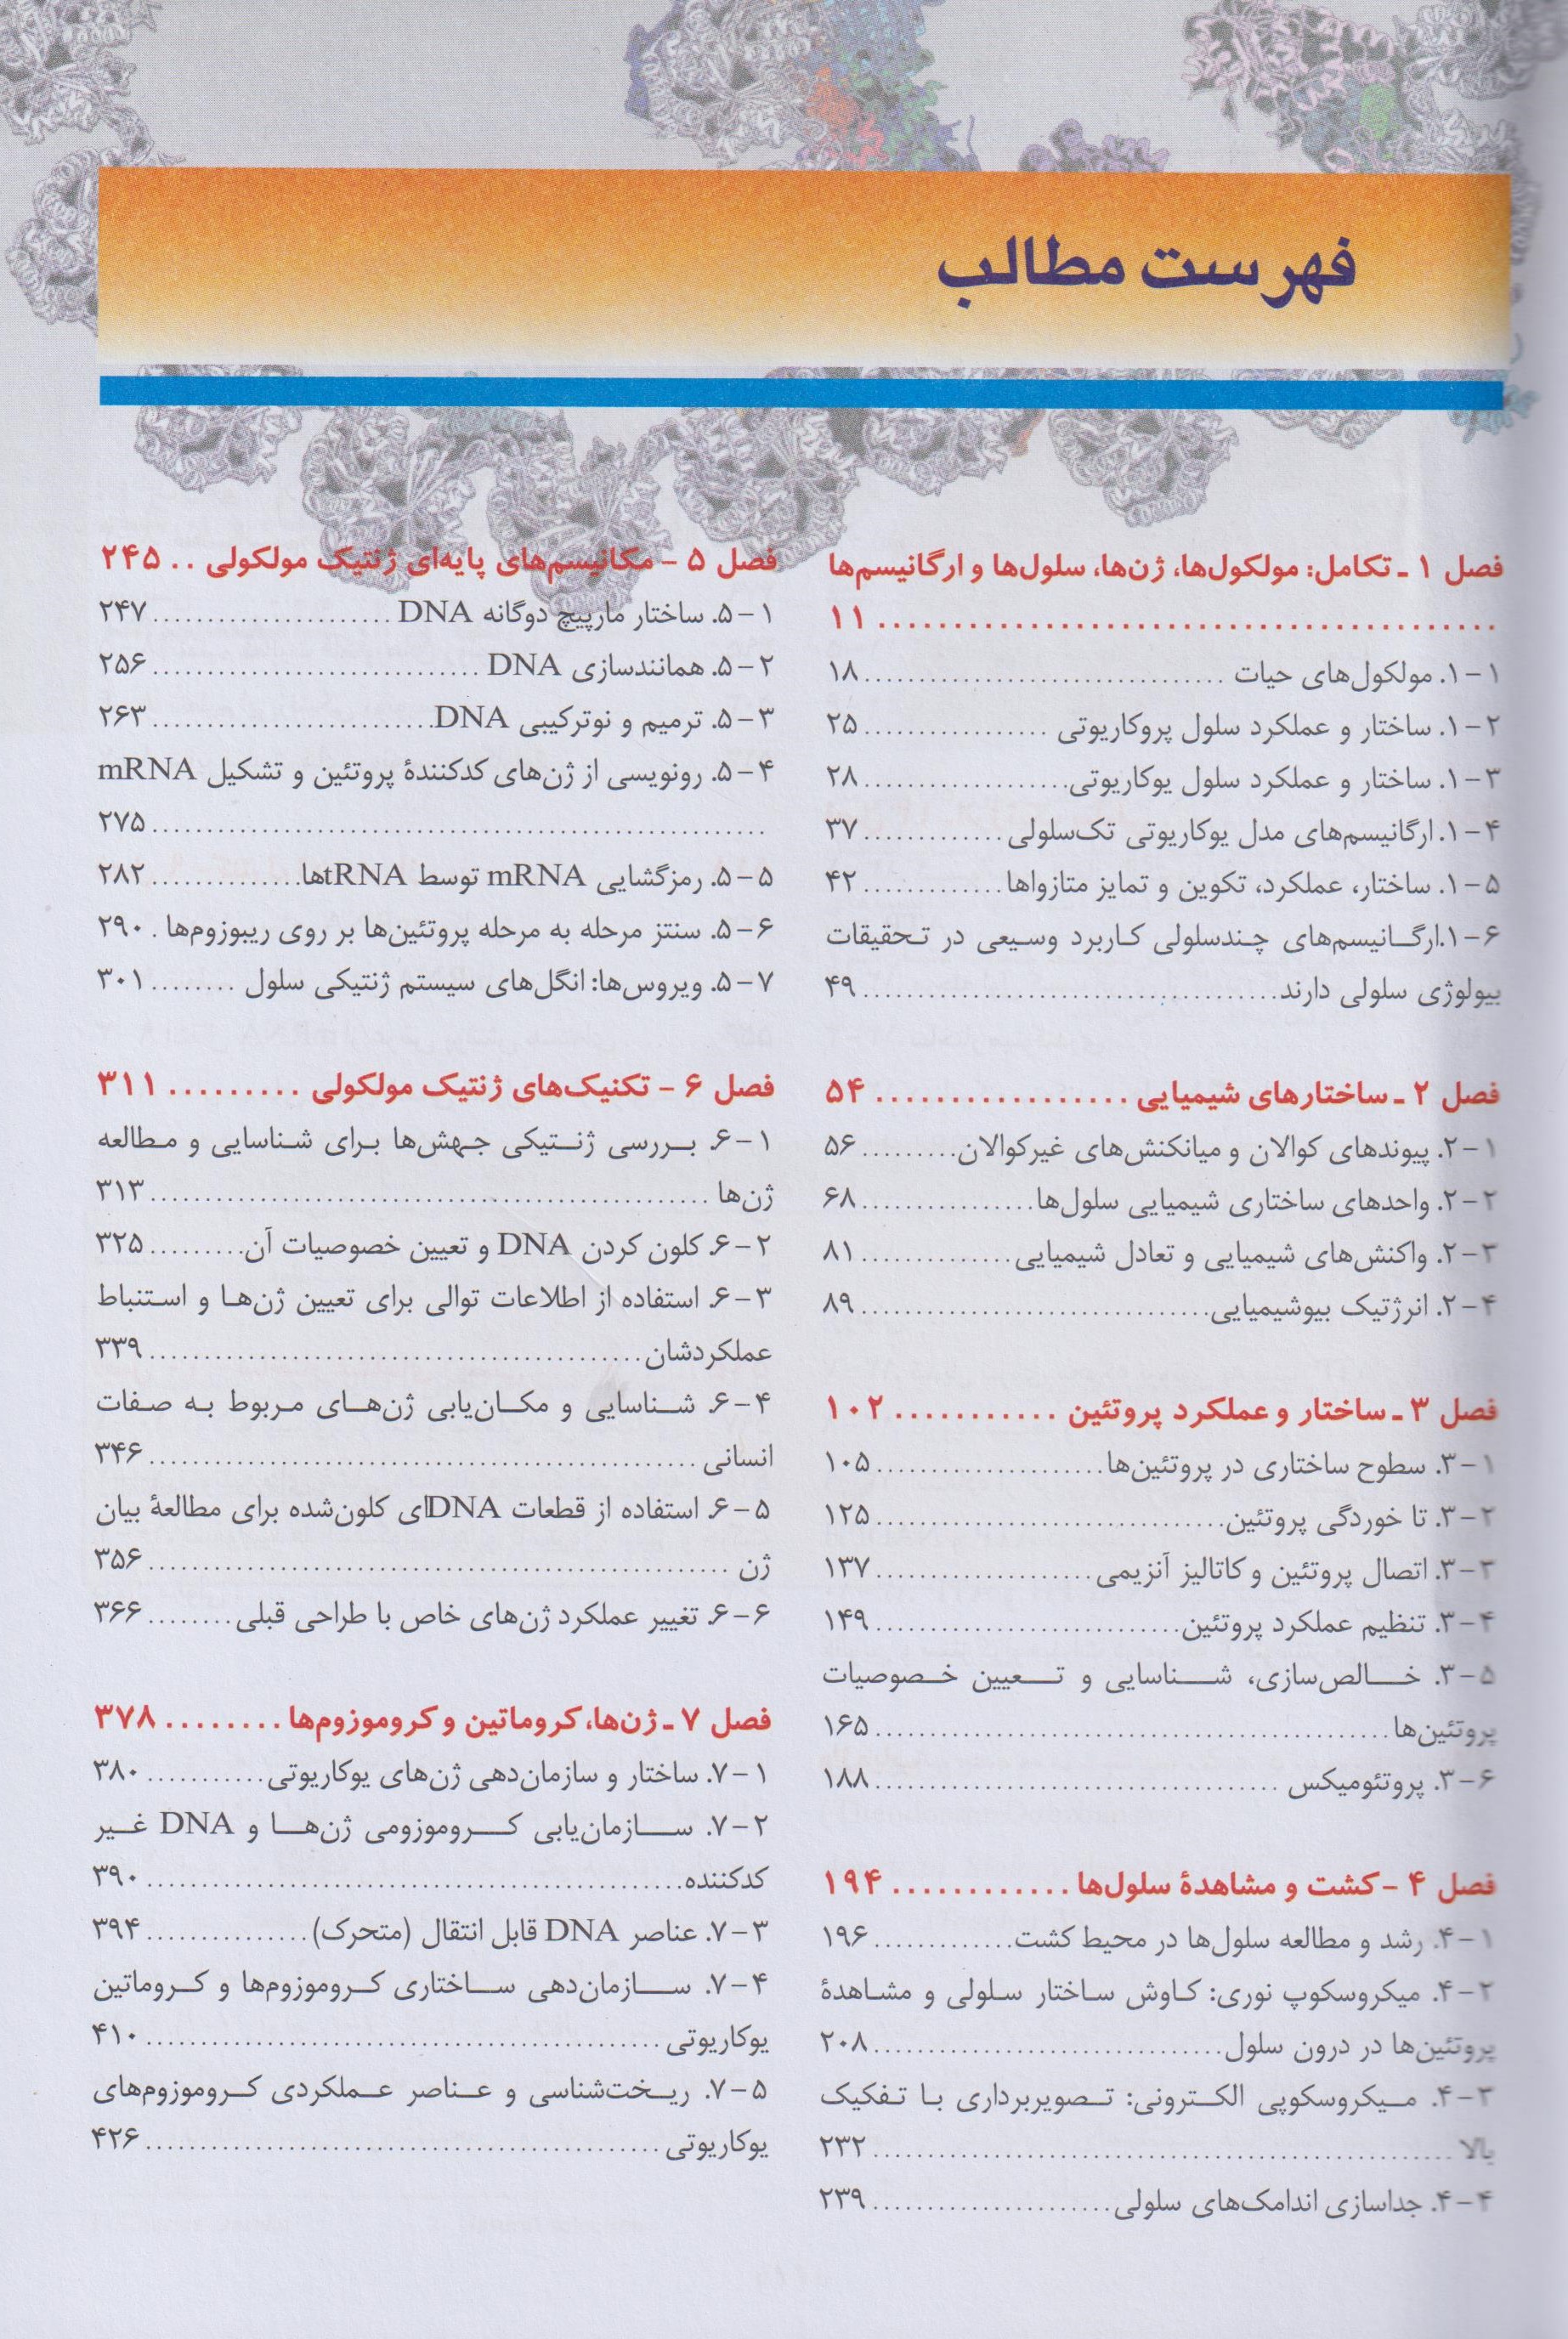 فهرست مطالب
فصل ۱ ـ تکامل: مولکول‌ها، ژن‌ها، سلول‌ها و ارگانیسم‌ها
........................................ ۱۱
۱-۱. مولکول‌های حیات ................................ ۱۸
۱-۲. ساختار و عملکرد سلول پروکاریوتی ................. ۲۵
۱-۳. ساختار و عملکرد سلول یوکاریوتی................... ۲۸
۱-۴. ارگانیسم‌های مدل یوکاریوتی تک‌سلولی ............. ۳۷
۱-۵. ساختار، عملکرد، تکوین و تمایز متازواها............. ۴۲
۱-۶.ارگانیسم‌های چندسلولی کاربرد وسیعی در تحقیقات
بیولوژی سلولی دارند...................................... ۴۹
فصل ۲ ـ ساختارهای شیمیایی ................. ۵۴
۲-۱. پیوندهای کوالان و میانکنش‌های غیرکوالان......... ۵۶
۲-۲. واحدهای ساختاری شیمیایی سلول‌ها................ ۶۸
۲-۳. واکنش‌های شیمیایی و تعادل شیمیایی.............. ۸۱
۲-۴. انرژتیک بیوشیمیایی................................ ۸۹
فصل ۳ ـ ساختار و عملکرد پروتئین ........... ۱۰۲
۳-۱. سطوح ساختاری در پروتئین‌ها..................... ۱۰۵
۳-۲. تا خوردگی پروتئین................................ ۱۲۵
۳-۳. اتصال پروتئین و کاتالیز آنزیمی.................... ۱۳۷
۳-۴. تنظیم عملکرد پروتئین............................ ۱۴۹
۳-۵. خالص‌سازی، شناسایی و تعیین خصوصیات
پروتئین‌ها................................................ ۱۶۵
۳-۶. پروتئومیکس ..................................... ۱۸۸
فصل ۴ - کشت و مشاهدهٔ سلول‌ها ............ ۱۹۴
۴-۱. رشد و مطالعه سلول‌ها در محیط کشت............. ۱۹۶
۴-۲. میکروسکوپ نوری: کاوش ساختار سلولی و مشاهدهٔ
پروتئین‌ها در درون سلول................................ ۲۰۸
۴-۳. میکروسکوپی الکترونی: تصویربرداری با تفکیک
بالا ..................................................... ۲۳۲
۴-۴. جداسازی اندامک‌های سلولی...................... ۲۳۹
فصل ۵ - مکانیسم‌های پایه‌ای ژنتیک مولکولی .. ۲۴۵
۵-۱. ساختار مارپیچ دوگانه DNA ...................... ۲۴۷
۵-۲. همانندسازی DNA .............................. ۲۵۶
۵-۳. ترمیم و نوترکیبی DNA.......................... ۲۶۳
۵-۴. رونویسی از ژن‌های کدکنندهٔ پروتئین و تشکیل mRNA
........................................................ ۲۷۵
۵-۵. رمزگشایی mRNA توسط tRNAها.............. ۲۸۲
۵-۶. سنتز مرحله به مرحله پروتئین‌ها بر روی ریبوزوم‌ها . ۲۹۰
۵-۷. ویروس‌ها: انگل‌های سیستم ژنتیکی سلول ........ ۳۰۱
فصل ۶ - تکنیک‌های ژنتیک مولکولی ......... ۳۱۱
۶-۱. بررسی ژنتیکی جهش‌ها برای شناسایی و مطالعه
ژن‌ها ................................................... ۳۱۳
۶-۲. کلون کردن DNA و تعیین خصوصیات آن......... ۳۲۵
۶-۳. استفاده از اطلاعات توالی برای تعیین ژن‌ها و استنباط
عملکردشان............................................. ۳۳۹
۶-۴. شناسایی و مکان‌یابی ژن‌های مربوط به صفات
انسانی .................................................. ۳۴۶
۶-۵. استفاده از قطعات DNAای کلون‌شده برای مطالعهٔ بیان
ژن ..................................................... ۳۵۶
۶-۶. تغییر عملکرد ژن‌های خاص با طراحی قبلی........ ۳۶۶
فصل ۷ ـ ژن‌ها، کروماتین و کروموزوم‌ها ........ ۳۷۸
۷-۱. ساختار و سازمان‌دهی ژن‌های یوکاریوتی........... ۳۸۰
۷-۲. سازمان‌یابی کروموزومی ژن‌ها و DNA غیر
کدکننده................................................. ۳۹۰
۷-۳. عناصر DNA قابل انتقال (متحرک)............... ۳۹۴
۷-۴. سازمان‌دهی ساختاری کروموزوم‌ها و کروماتین
یوکاریوتی ............................................... ۴۱۰
۷-۵. ریخت‌شناسی و عناصر عملکردی کروموزوم‌های
یوکاریوتی ............................................... ۴۲۶